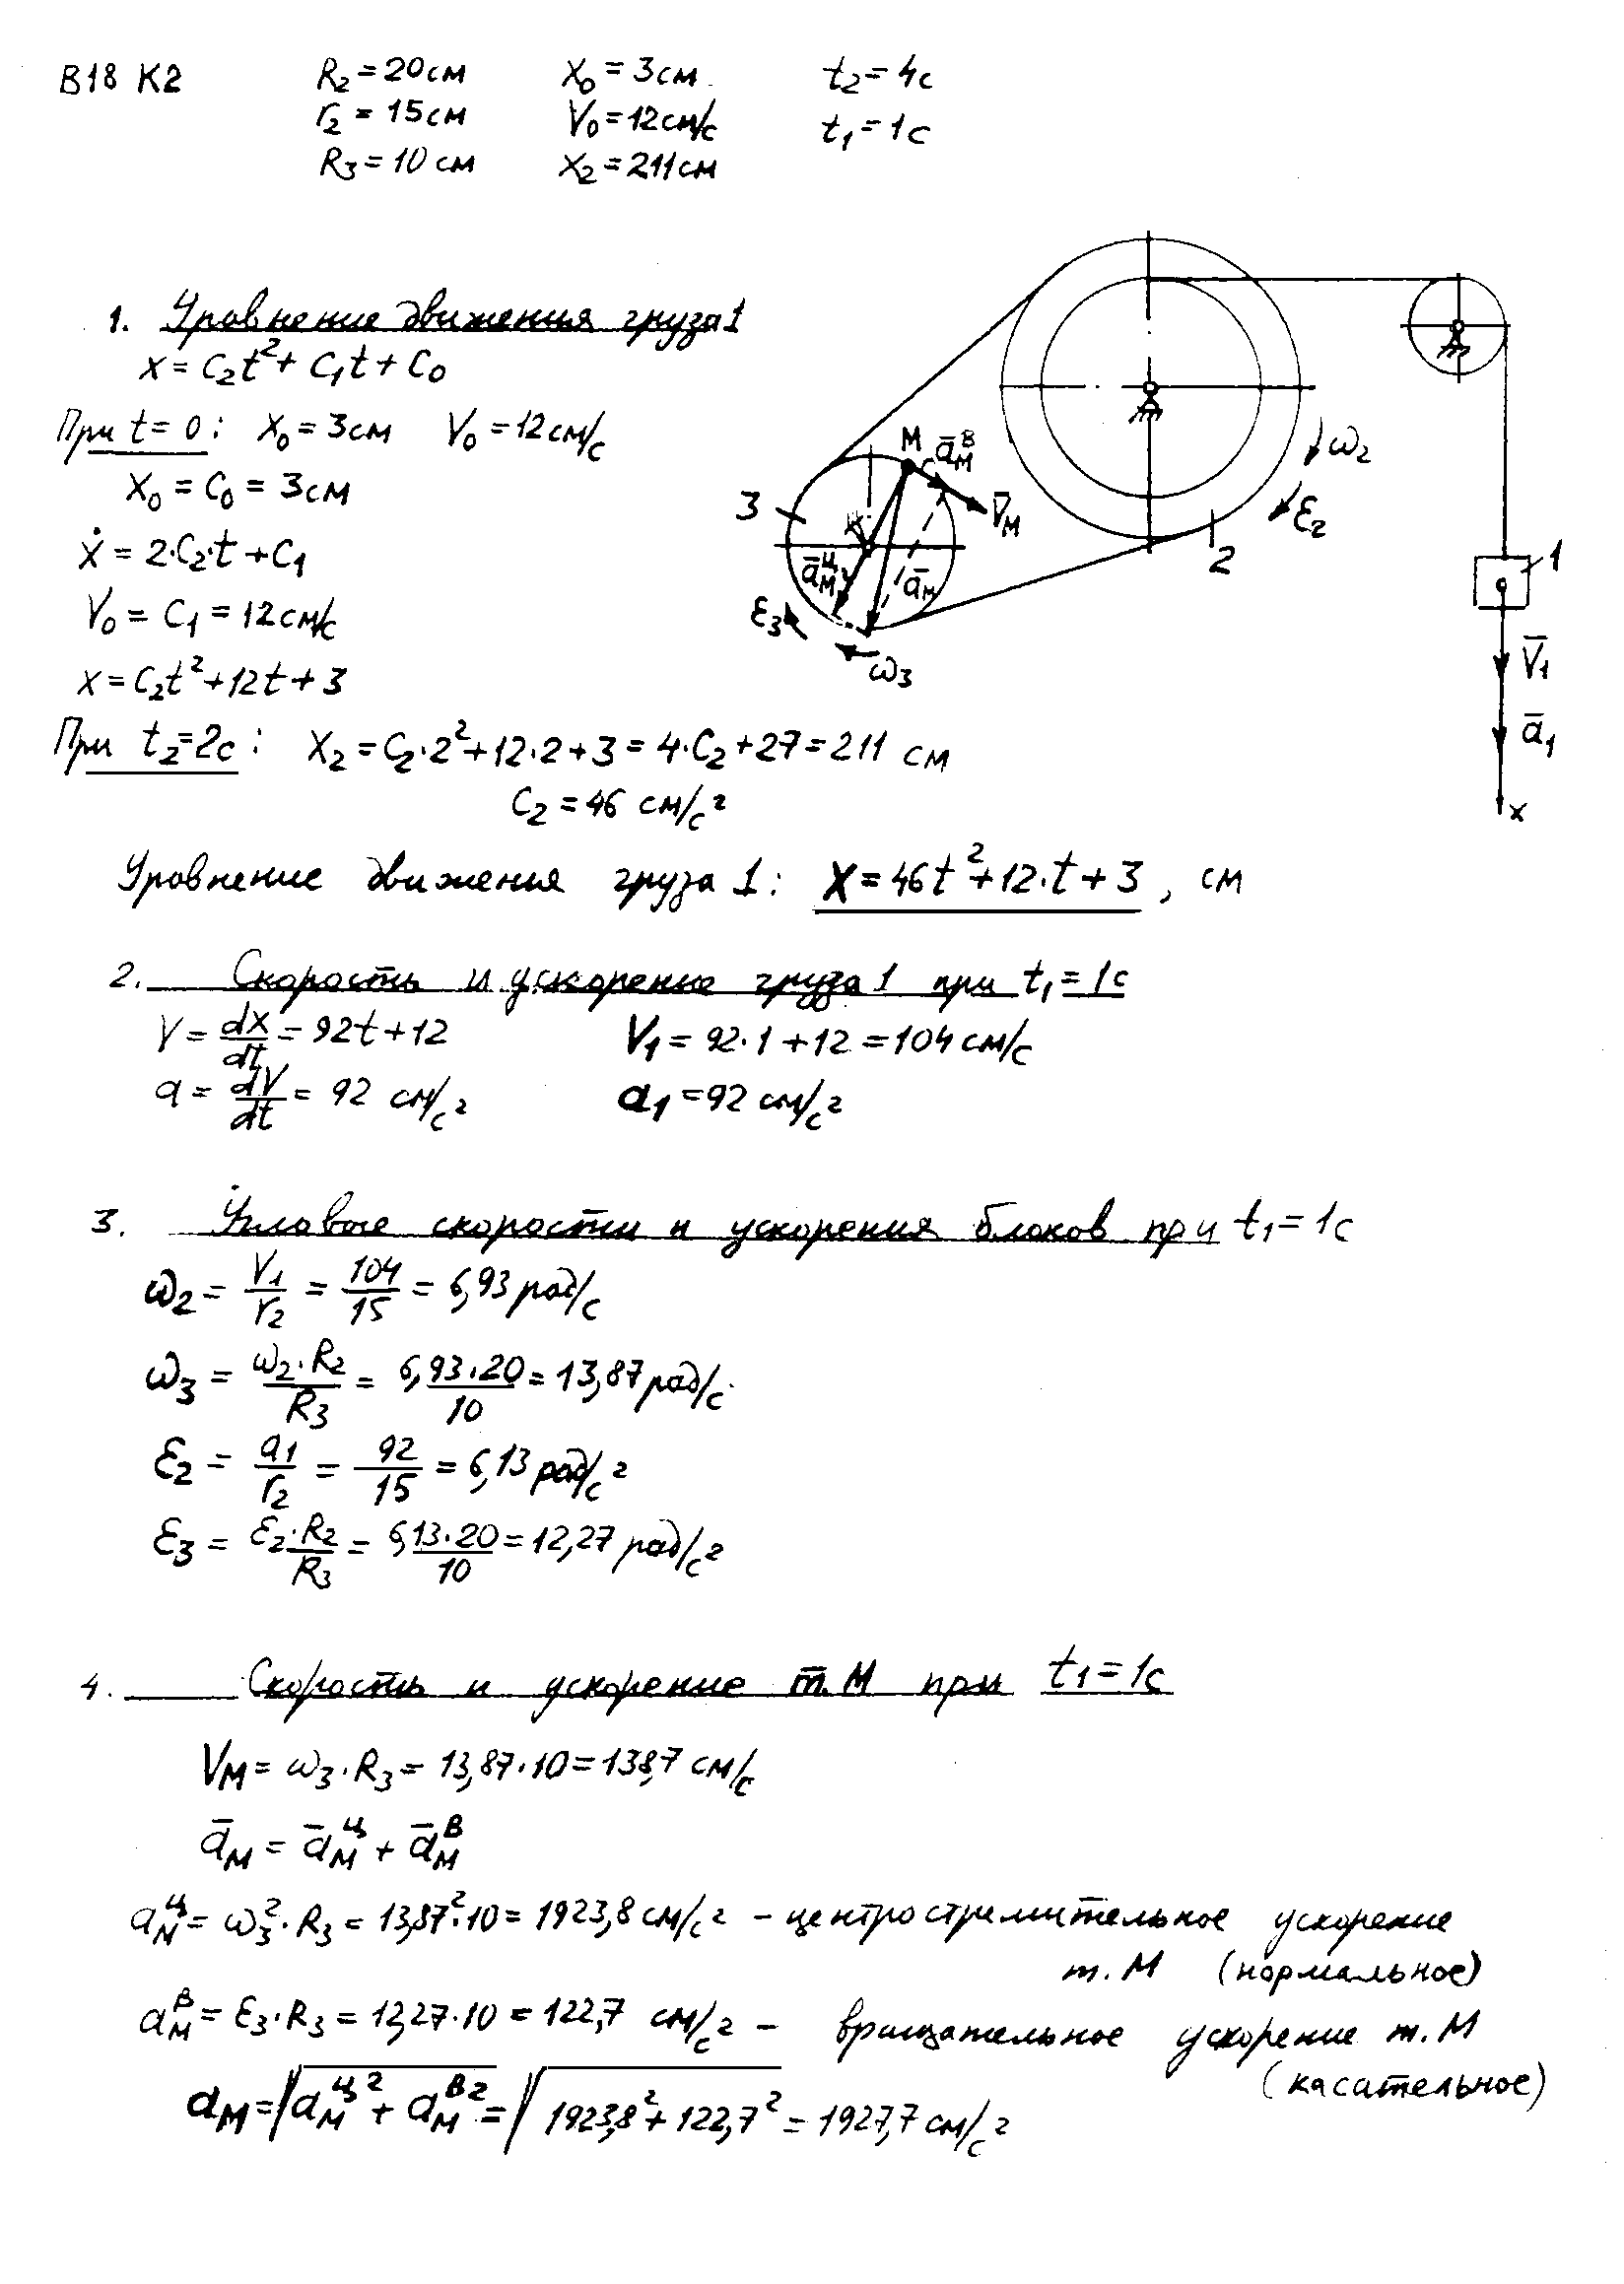 В18 К2 R₂ = 20см x₀ = 3см t₂ = 4с
r₂ = 15см V₀ = 12см/с t₁ = 1с
R₃ = 10 см x₂ = 211см
1. Уровнение движения груза 1
x = C₂t² + C₁t + C₀
При t = 0: x₀ = 3см V₀ = 12см/с
x₀ = C₀ = 3см
ẋ = 2·C₂·t + C₁
V₀ = C₁ = 12см/с
x = C₂t² + 12t + 3
При t₂ = 2с: x₂ = C₂·2² + 12·2 + 3 = 4·C₂ + 27 = 211 см
C₂ = 46 см/с²
M
a̅ᴍᴮ
V̅ᴍ
3
a̅ᴍᶸ
a̅ᴍ
ε₃
ω₃
ω₂
ε₂
2
1
V̅₁
a̅₁
x
Уровнение движения груза 1: x = 46t² + 12·t + 3, см
2. Скорость и ускорение груза 1 при t₁ = 1с
V = dx/dt = 92t + 12 V₁ = 92·1 + 12 = 104 см/с
a = dV/dt = 92 см/с² a₁ = 92 см/с²
3. Угловые скорости и ускорения блоков при t₁ = 1с
ω₂ = V₁/r₂ = 104/15 = 6,93 рад/с
ω₃ = ω₂·R₂/R₃ = 6,93·20/10 = 13,87 рад/с
ε₂ = a₁/r₂ = 92/15 = 6,13 рад/с²
ε₃ = ε₂·R₂/R₃ = 6,13·20/10 = 12,27 рад/с²
4. Скорость и ускорение т.М при t₁ = 1с
Vᴍ = ω₃·R₃ = 13,87·10 = 138,7 см/с
a̅ᴍ = a̅ᴍ^ц + a̅ᴍ^в
aᴍ^ц = ω₃²·R₃ = 13,87²·10 = 1923,8 см/с² – центростремительное ускорение
т.М (нормальное)
aᴍ^в = ε₃·R₃ = 12,27·10 = 122,7 см/с² – вращательное ускорение т.М
(касательное)
aᴍ = √(aᴍ^ц² + aᴍ^в²) = √(1923,8² + 122,7²) = 1927,7 см/с²